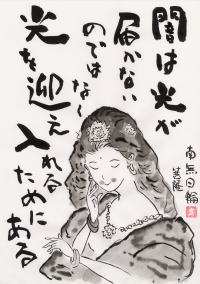 闇は光が
届かない
のではなく
光を迎え入れる
ために
ある
南無日輪
菩薩